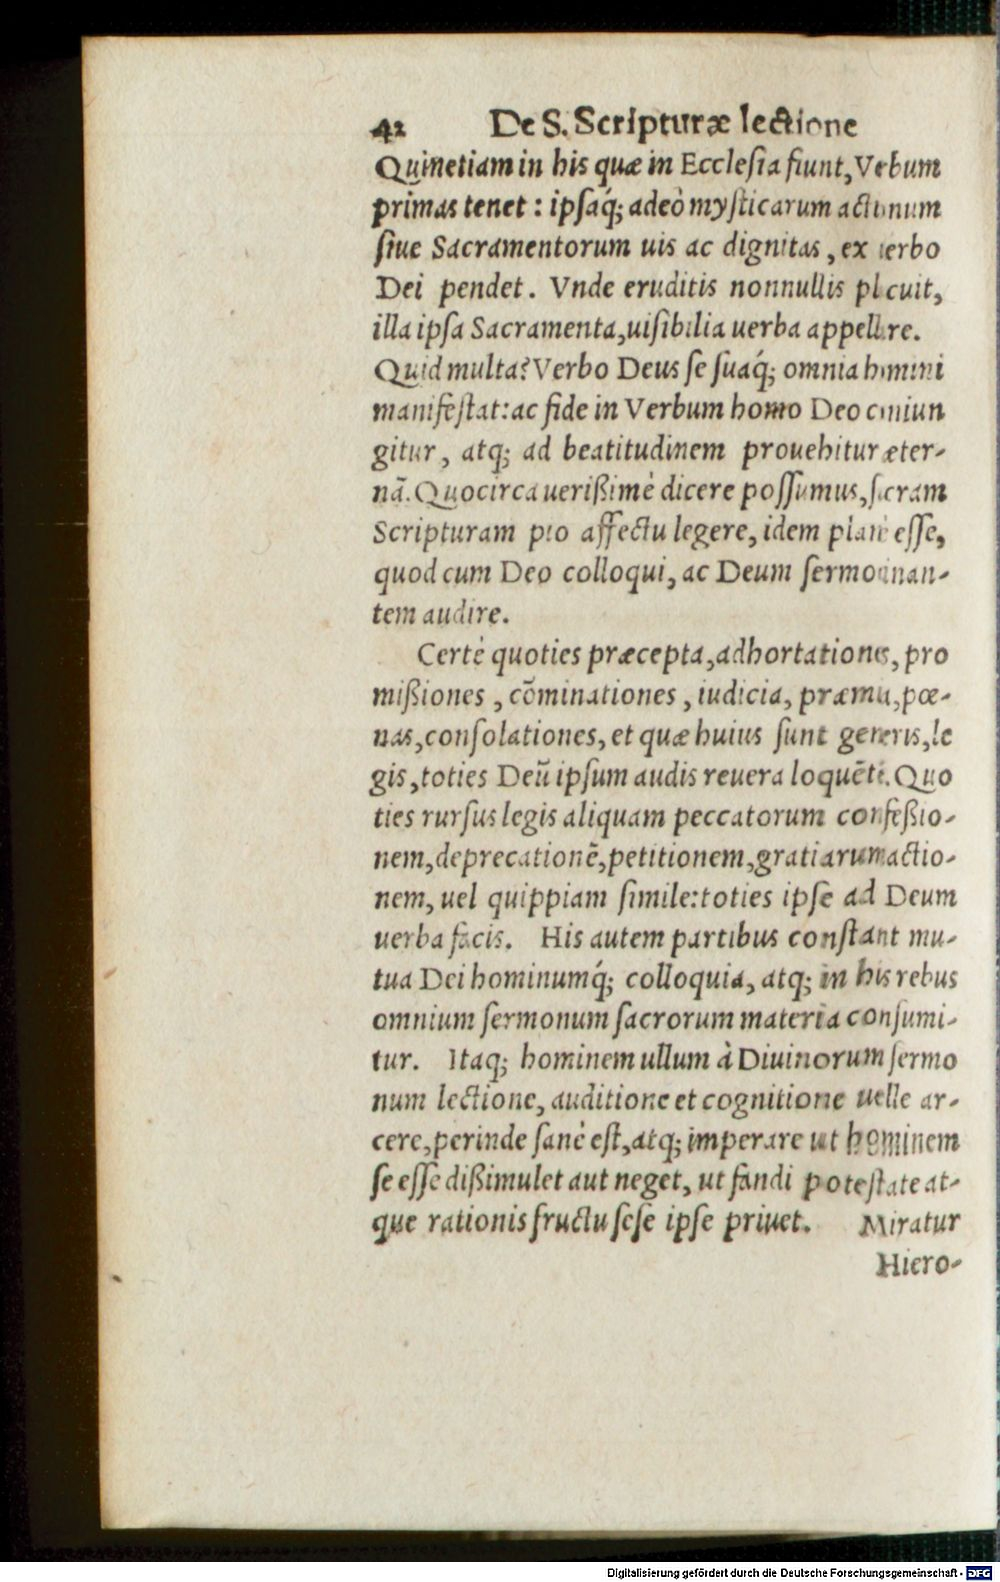 42 De S. Scripturæ lectione
Quinetiam in his quæ in Ecclesia fiunt, Verbum
primas tenet : ipsaq́; adeò mysticarum actionum
siue Sacramentorum uis ac dignitas , ex uerbo
Dei pendet . Vnde eruditis nonnullis placuit,
illa ipsa Sacramenta, uisibilia uerba appellare.
Quid multa? Verbo Deus se suaq́; omnia homini
manifestat: ac fide in Verbum homo Deo coniun
gitur , atq; ad beatitudinem prouehitur æter-
nā. Quocirca uerißimè dicere possumus, sacram
Scripturam pio affectu legere, idem planè esse,
quod cum Deo colloqui, ac Deum sermocinan-
tem audire.
Certè quoties præcepta, adhortationes, pro
mißiones , cōminationes , iudicia, præmia, pœ-
nas, consolationes, et quæ huius sunt generis, le
gis, toties Deū ipsum audis reuera loquētē. Quo
ties rursus legis aliquam peccatorum confeßio-
nem, deprecationē, petitionem, gratiarum actio-
nem, uel quippiam simile: toties ipse ad Deum
uerba facis. His autem partibus constant mu-
tua Dei hominumq́; colloquia, atq; in his rebus
omnium sermonum sacrorum materia consumi-
tur. Itaq; hominem ullum à Diuinorum sermo
num lectione, auditione et cognitione uelle ar-
cere, perinde sanè est, atq; imperare ut hominem
se esse dißimulet aut neget, ut fandi potestate at-
que rationis fructu sese ipse priuet. Miratur
Hiero-
Digitalisierung gefördert durch die Deutsche Forschungsgemeinschaft - DFG